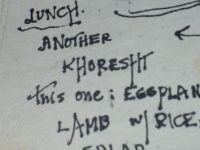 LUNCH.
ANOTHER
KHORESHT
this one: EGGPLAN
LAMB w/ RICE